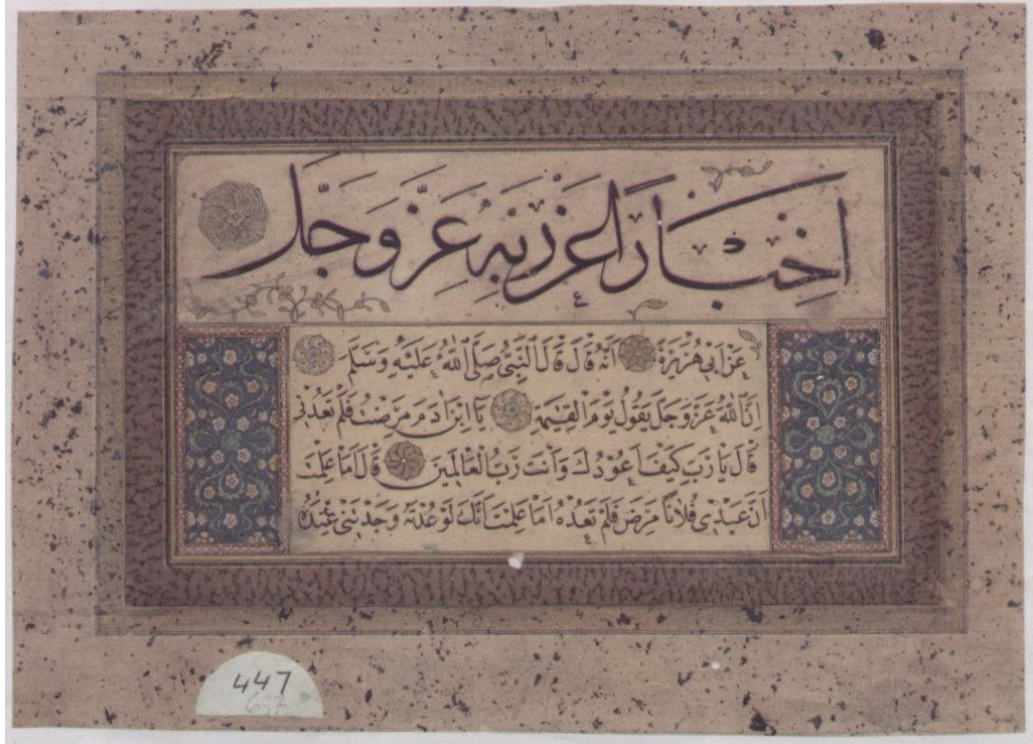 اخبارًا عن ربه عز وجل
عَنْ اَبِي هُرَيْرَةَ اَنَّهُ قَالَ قَالَ النَّبِيُّ صَلَّى اللّٰهُ عَلَيْهِ وَسَلَّمَ
اِنَّ اللّٰهَ عَزَّ وَجَلَّ يَقُولُ يَوْمَ الْقِيٰمَةِ يَا ابْنَ اٰدَمَ مَرِضْتُ فَلَمْ تَعُدْنِي
قَالَ يَا رَبِّ كَيْفَ اَعُودُكَ وَاَنْتَ رَبُّ الْعَالَمِينَ قَالَ اَمَا عَلِمْتَ
اَنَّ عَبْدِي فُلَانًا مَرِضَ فَلَمْ تَعُدْهُ اَمَا عَلِمْتَ اَنَّكَ لَوْ عُدْتَهُ وَجَدْتَنِي عِنْدَهُ
447